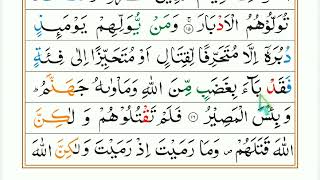 تُوَلُّوۡهُمُ الۡاَدۡبَارَ ۚ‏ ﴿۱۵﴾ وَمَنۡ يُّوَلِّهِمۡ يَوۡمَٮِٕذٍ
دُبُرَهٗۤ اِلَّا مُتَحَرِّفًا لِّقِتَالٍ اَوۡ مُتَحَيِّزًا اِلٰى فِئَةٍ
فَقَدۡ بَآءَ بِغَضَبٍ مِّنَ اللّٰهِ وَمَاۡوٰٮهُ جَهَـنَّمُ‌ؕ
وَبِئۡسَ الۡمَصِيۡرُ ﴿۱۶﴾ فَلَمۡ تَقۡتُلُوۡهُمۡ وَلٰـكِنَّ
اللّٰهَ قَتَلَهُمۡ وَمَا رَمَيۡتَ اِذۡ رَمَيۡتَ وَ لٰـكِنَّ اللّٰهَ